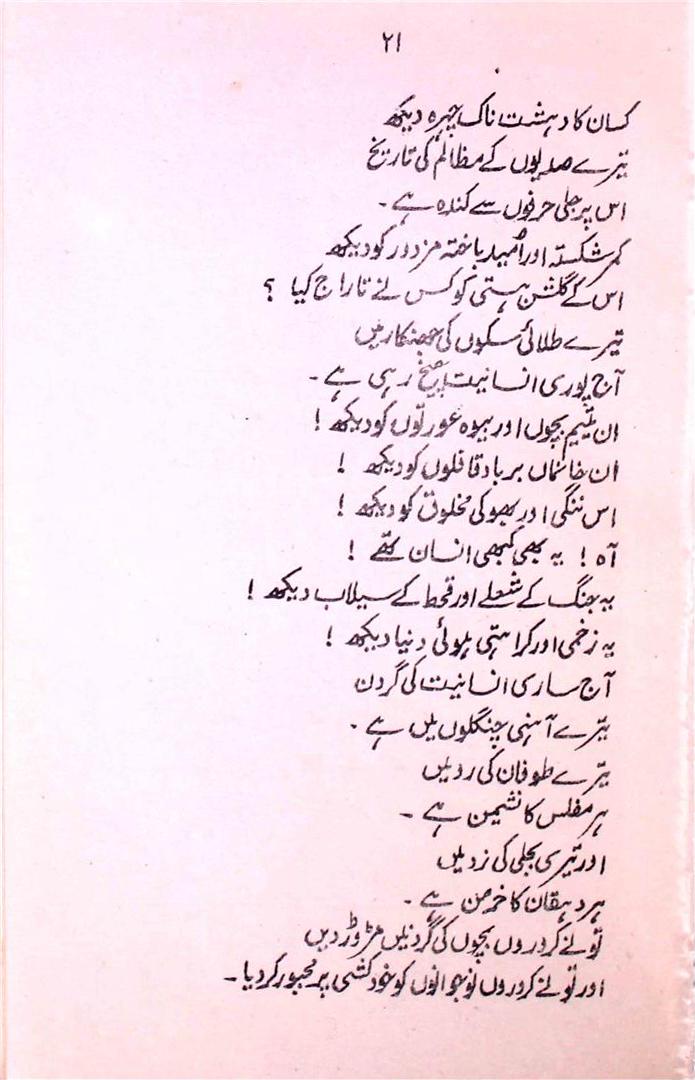 ۲۱
کسان کا دہشت ناک چہرہ دیکھ
تیرے صدیوں کے مظالم کی تاریخ
اس پر جلی حرفوں سے کندہ ہے ۔
کمر شکستہ اور اُمید باختہ مزدور کو دیکھ
اس کے گلشن ہستی کو کس نے تاراج کیا ؟
تیرے طلائی سکوں کی جھنکار میں
آج پوری انسانیت چیخ رہی ہے ۔
ان یتیم بچوں اور بیوہ عورتوں کو دیکھ !
ان خانماں برباد قافلوں کو دیکھ !
اس ننگی اور بھوکی مخلوق کو دیکھ !
آہ ! یہ بھی کبھی انسان تھے !
یہ جنگ کے شعلے اور قحط کے سیلاب دیکھ !
یہ زخمی اور کراہتی ہوئی دنیا دیکھ !
آج ساری انسانیت کی گردن
تیرے آہنی چنگلوں میں ہے ۔
تیرے طوفان کی رد میں
ہر مفلس کا نشیمن ہے ۔
اور تیری بجلی کی زد میں
ہر دہقان کا خرمن ہے ۔
تو نے کروروں بچوں کی گردنیں مڑوڑ دیں
اور تو نے کروروں نوجوانوں کو خودکشی پر مجبور کر دیا ۔